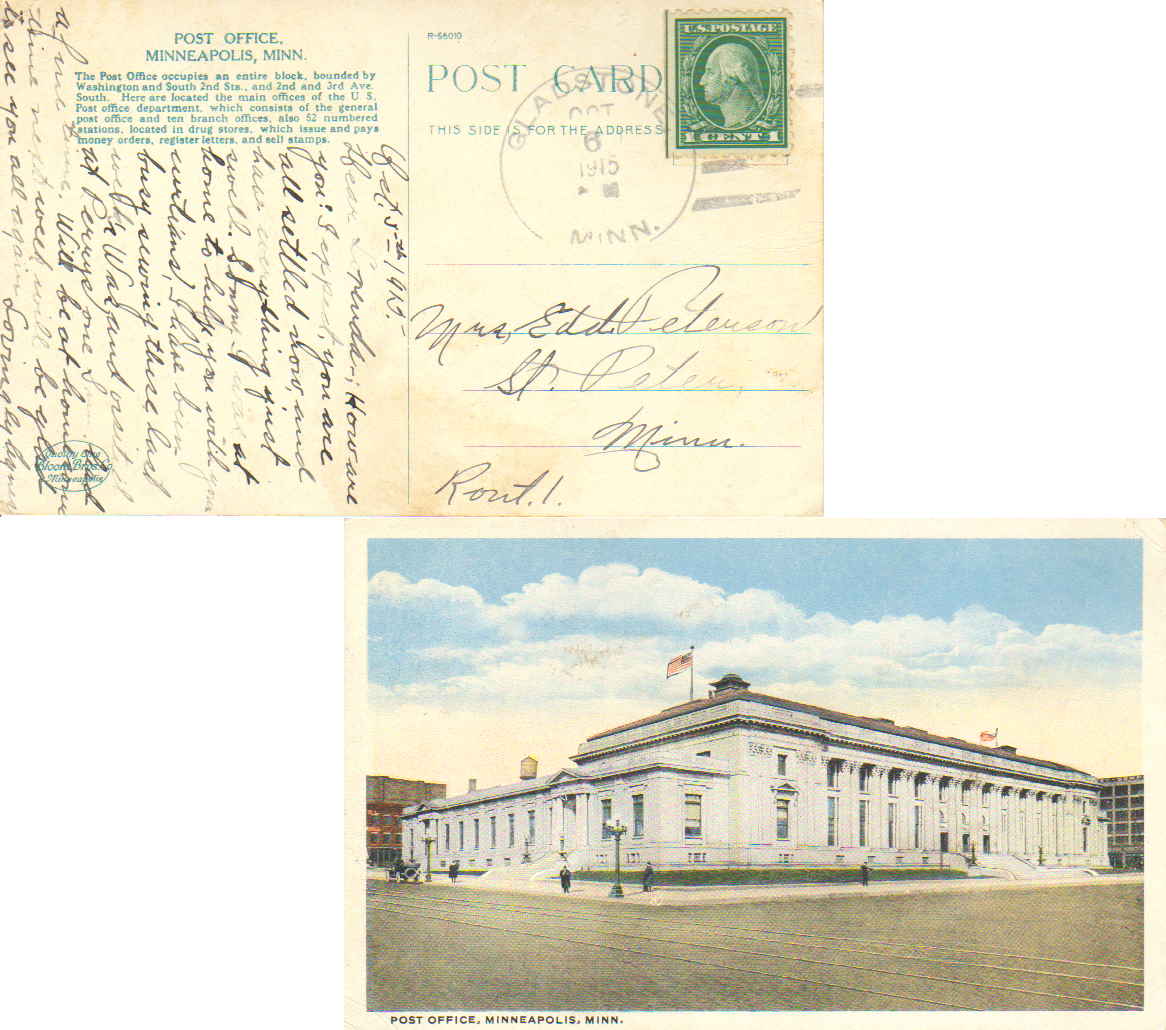 POST OFFICE,
MINNEAPOLIS, MINN.
The Post Office occupies an entire block, bounded by
Washington and South 2nd Sts., and 2nd and 3rd Ave.
South. Here are located the main offices of the U. S.
Post office department, which consists of the general
post office and ten branch offices, also 52 numbered
stations, located in drug stores, which issue and pays
money orders, register letters, and sell stamps.
Oct. 5-th 1915-
Dear How are
you? I expect, you are
all settled now, and
have everything just
swell. I was at
home to help you with your
curtians, I have been
busy sewing these last
week's Was and visited
at Perrys one had
a fine time. Will be at home some
time next week, will be glad
to see you all again. Lovingly
Quality Line
Bloom Bros. Co.
Minneapolis
R-56010
POST CARD
THIS SIDE IS FOR THE ADDRESS
U.S. POSTAGE
1 CENT 1
GLADSTONE
OCT
6
1915
MINN.
Mrs. Edd. Peterson
St. Peter,
Minn.
Rout. 1.
POST OFFICE, MINNEAPOLIS, MINN.